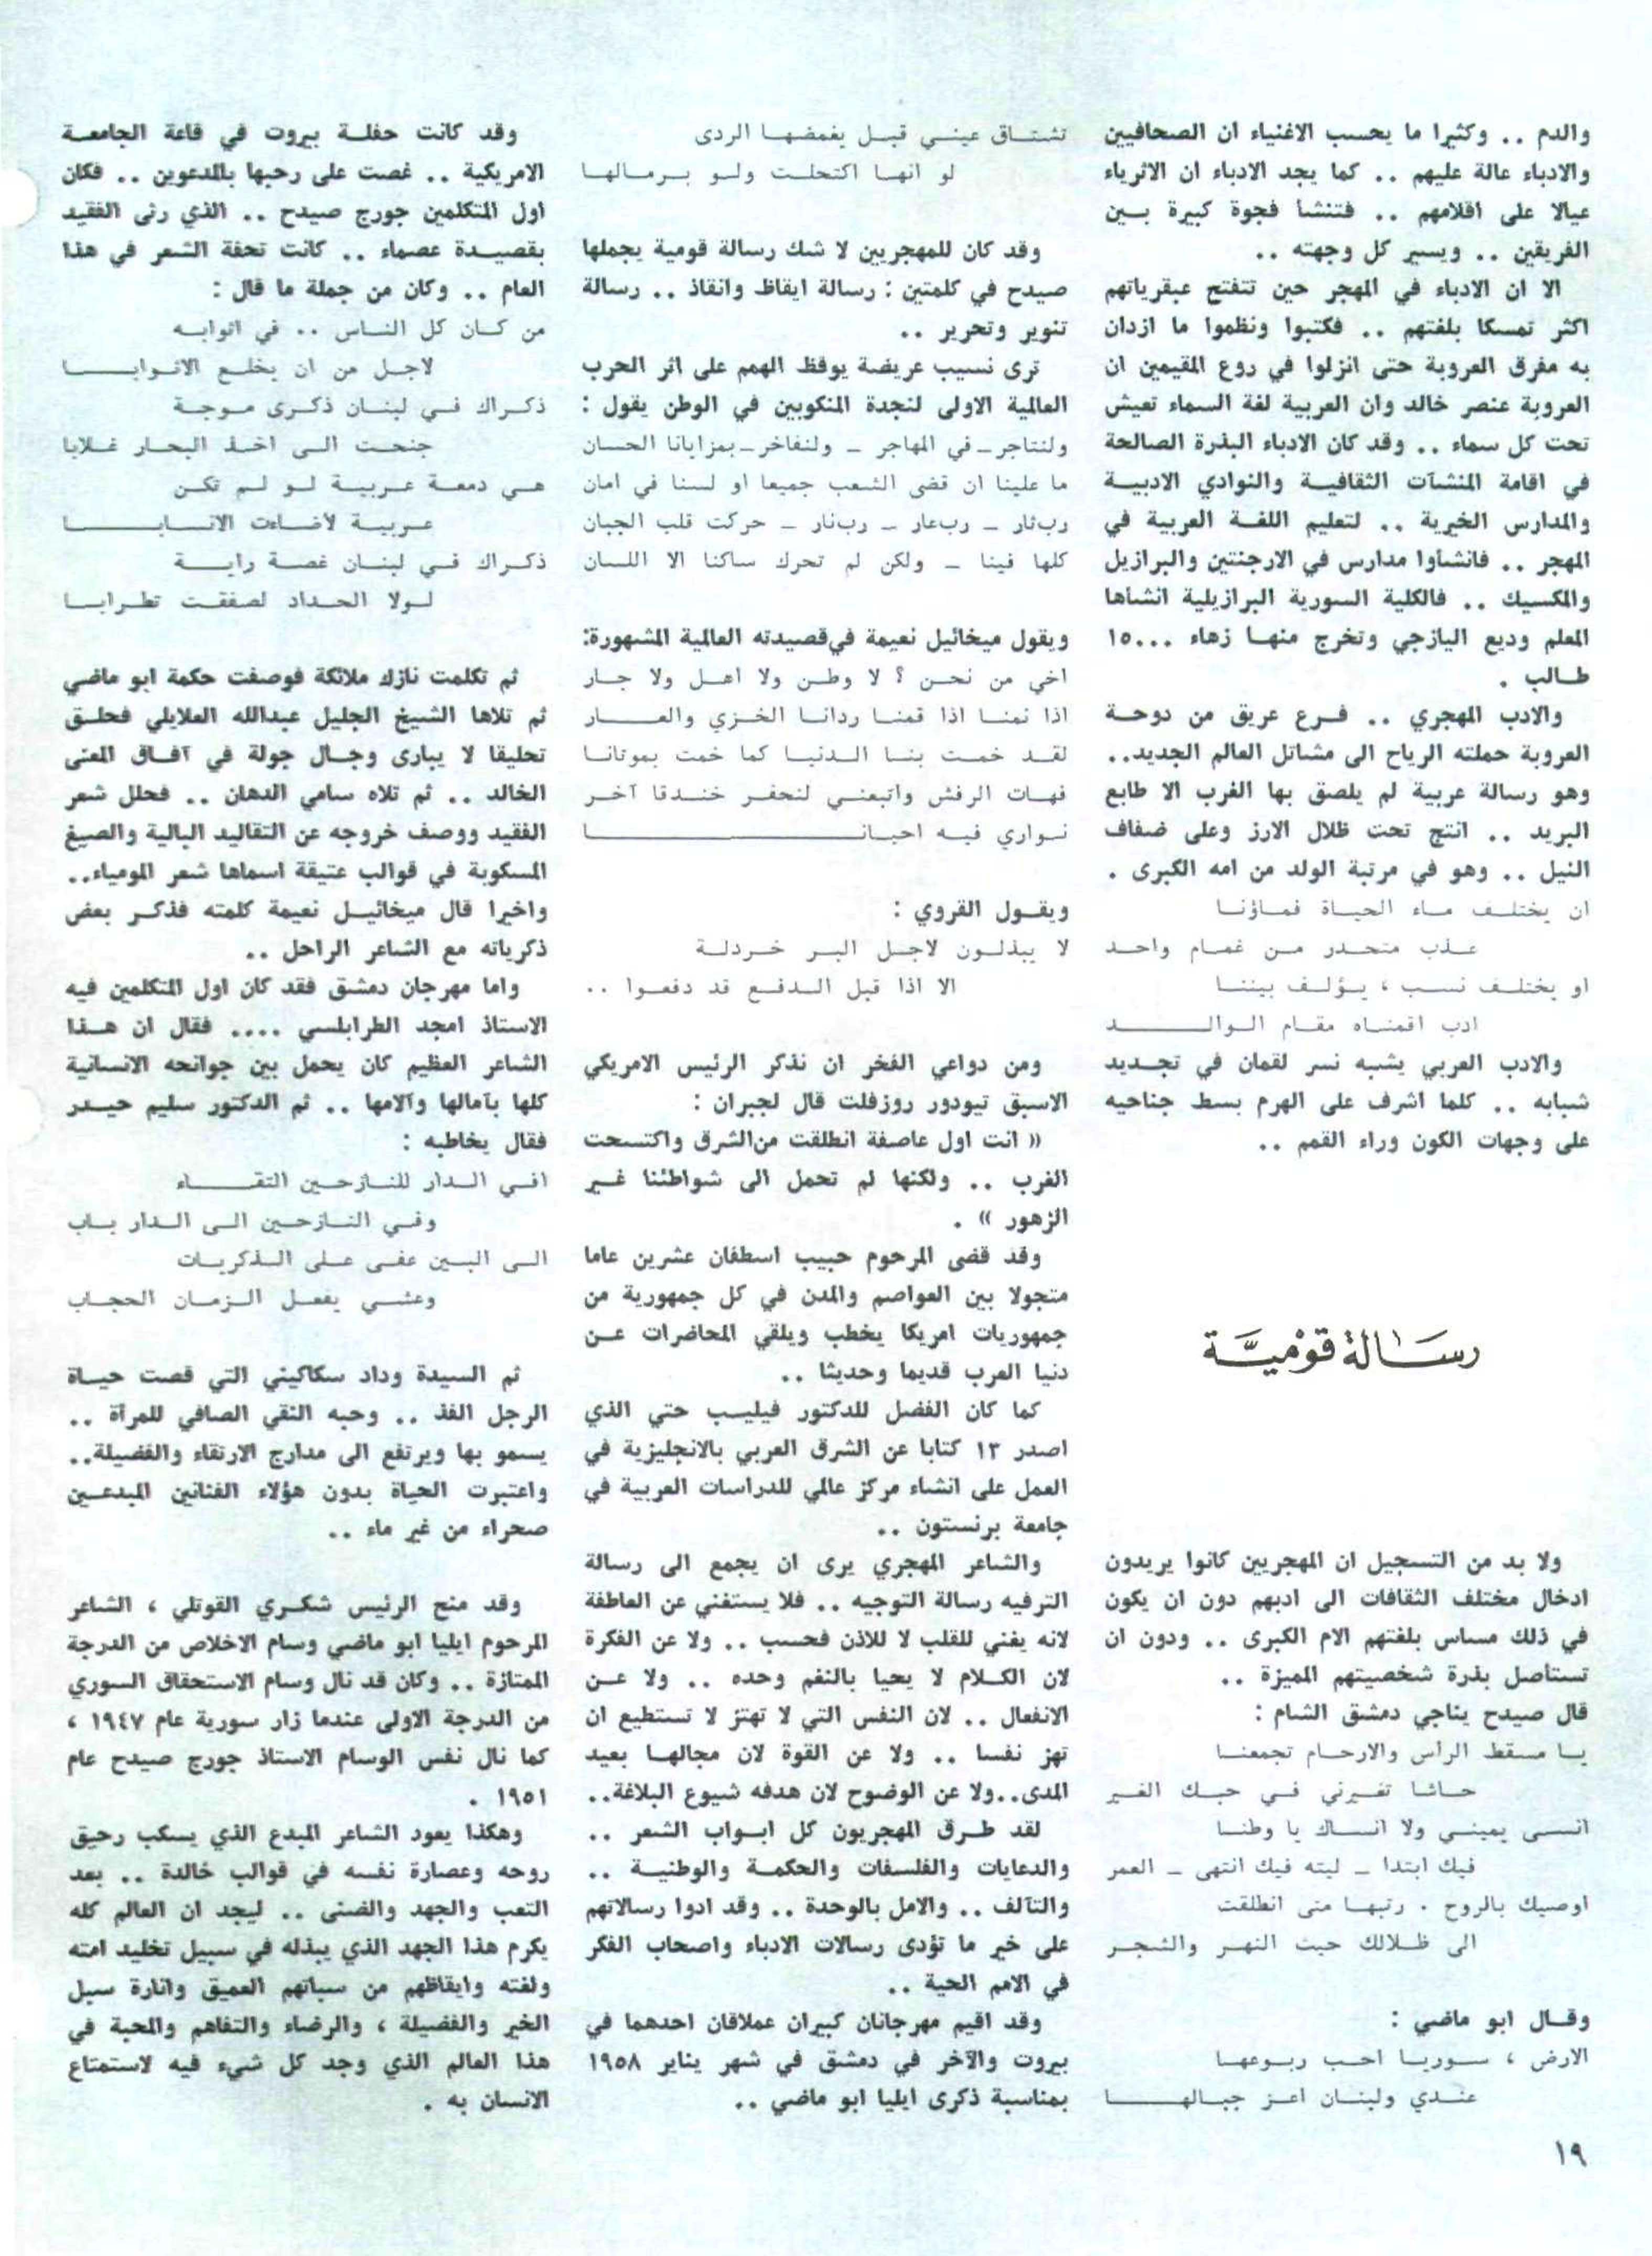 والدم .. وكثيرا ما يحسب الاغنياء ان الصحافيين
والادباء عالة عليهم .. كما يجد الادباء ان الاثرياء
عيالا على اقلامهم .. فتنشأ فجوة كبيرة بين
الفريقين .. ويسير كل وجهته ..
الا ان الادباء في المهجر حين تتفتح عبقرياتهم
اكثر تمسكا بلغتهم .. فكتبوا ونظموا ما ازدان
به مفرق العروبة حتى انزلوا في روع المقيمين ان
العروبة عنصر خالد وان العربية لغة السماء تعيش
تحت كل سماء .. وقد كان الادباء البذرة الصالحة
في اقامة المنشآت الثقافية والنوادي الادبية
والمدارس الخيرية .. لتعليم اللغة العربية في
المهجر .. فانشأوا مدارس في الارجنتين والبرازيل
والمكسيك .. فالكلية السورية البرازيلية انشأها
المعلم وديع اليازجي وتخرج منها زهاء ١٥٠٠٠
طالب .
والادب المهجري .. فرع عريق من دوحة
العروبة حملته الرياح الى مشاتل العالم الجديد..
وهو رسالة عربية لم يلصق بها الغرب الا طابع
البريد .. انتج تحت ظلال الارز وعلى ضفاف
النيل .. وهو في مرتبة الولد من امه الكبرى .
ان يختلف ماء الحياة فماؤنا
عذب متحدر من غمام واحد
او يختلف نسب ، يؤلف بيننا
ادب اقمناه مقام الوالد
والادب العربي يشبه نسر لقمان في تجديد
شبابه .. كلما اشرف على الهرم بسط جناحيه
على وجهات الكون وراء القمم ..
رسالة قوميّة
ولا بد من التسجيل ان المهجريين كانوا يريدون
ادخال مختلف الثقافات الى ادبهم دون ان يكون
في ذلك مساس بلغتهم الام الكبرى .. ودون ان
تستأصل بذرة شخصيتهم المميزة ..
قال صيدح يناجي دمشق الشام :
يا مسقط الرأس والارحام تجمعنا
حاشا تغيرني في حبك الغير
انسى يميني ولا انساك يا وطنا
فيك ابتدا - ليته فيك انتهى - العمر
اوصيك بالروح . رتبها متى انطلقت
الى ظلالك حيث النهر والشجر
وقال ابو ماضي :
الارض ، سوريا احب ربوعها
عندي ولبنان اعز جبالها
تشتاق عيني قبل يغمضها الردى
لو انها اكتحلت ولو برمالها
وقد كان للمهجريين لا شك رسالة قومية يجملها
صيدح في كلمتين : رسالة ايقاظ وانقاذ .. رسالة
تنوير وتحرير ..
ترى نسيب عريضة يوقظ الهمم على اثر الحرب
العالمية الاولى لنجدة المنكوبين في الوطن يقول :
ولنتاجر - في المهاجر - ولنفاخر - بمزايانا الحسان
ما علينا ان قضى الشعب جميعا او لسنا في امان
رب ثار - رب عار - رب نار - حركت قلب الجبان
كلها فينا - ولكن لم تحرك ساكنا الا اللسان
ويقول ميخائيل نعيمة في قصيدته العالمية المشهورة:
اخي من نحن ؟ لا وطن ولا اهل ولا جار
اذا نمنا اذا قمنا ردانا الخزي والعار
لقد خمت بنا الدنيا كما خمت بموتانا
فهات الرفش واتبعني لنحفر خندقا آخر
نواري فيه احيانا
ويقول القروي :
لا يبذلون لاجل البر خردلة
الا اذا قيل الدفع قد دفعوا ..
ومن دواعي الفخر ان نذكر الرئيس الامريكي
الاسبق تيودور روزفلت قال لجبران :
« انت اول عاصفة انطلقت من الشرق واكتسحت
الغرب .. ولكنها لم تحمل الى شواطئنا غير
الزهور » .
وقد قضى المرحوم حبيب اسطفان عشرين عاما
متجولا بين العواصم والمدن في كل جمهورية من
جمهوريات امريكا يخطب ويلقي المحاضرات عن
دنيا العرب قديما وحديثا ..
كما كان الفضل للدكتور فيليب حتي الذي
اصدر ١٣ كتابا عن الشرق العربي بالانجليزية في
العمل على انشاء مركز عالي للدراسات العربية في
جامعة برنستون ..
والشاعر المهجري يرى ان يجمع الى رسالة
الترفيه رسالة التوجيه .. فلا يستغني عن العاطفة
لانه يغني للقلب لا للاذن فحسب .. ولا عن الفكرة
لان الكلام لا يحيا بالنغم وحده .. ولا عن
الانفعال .. لان النفس التي لا تهتز لا تستطيع ان
تهز نفسا .. ولا عن القوة لان مجالها بعيد
المدى..ولا عن الوضوح لان هدفه شيوع البلاغة..
لقد طرق المهجريون كل ابواب الشعر ..
والدعايات والفلسفات والحكمة والوطنية ..
والتآلف .. والامل بالوحدة .. وقد ادوا رسالاتهم
على خير ما تؤدى رسالات الادباء واصحاب الفكر
في الامم الحية ..
وقد اقيم مهرجانان كبيران عملاقان احدهما في
بيروت والآخر في دمشق في شهر يناير ١٩٥٨
بمناسبة ذكرى ايليا ابو ماضي ..
وقد كانت حفلة بيروت في قاعة الجامعة
الامريكية .. غصت على رحبها بالمدعوين .. فكان
اول المتكلمين جورج صيدح .. الذي رثى الفقيد
بقصيدة عصماء .. كانت تحفة الشعر في هذا
العام .. وكان من جملة ما قال :
من كان كل الناس .. في اثوابه
لاجل من ان يخلع الاثوابا
ذكراك في لبنان ذكرى موجة
جنحت الى اخذ البحار غلابا
هي دمعة عربية لو لم تكن
عربية لأضاءت الانسابا
ذكراك في لبنان غصة راية
لولا الحداد لصفقت تطرابا
ثم تكلمت نازك ملائكة فوصفت حكمة ابو ماضي
ثم تلاها الشيخ الجليل عبدالله العلايلي فحلق
تحليقا لا يبارى وجال جولة في آفاق المعنى
الخالد .. ثم تلاه سامي الدهان .. فحلل شعر
الفقيد ووصف خروجه عن التقاليد البالية والصيغ
المسكوبة في قوالب عتيقة اسماها شعر المومياء..
واخيرا قال ميخائيل نعيمة كلمته فذكر بعض
ذكرياته مع الشاعر الراحل ..
واما مهرجان دمشق فقد كان اول المتكلمين فيه
الاستاذ امجد الطرابلسي .... فقال ان هذا
الشاعر العظيم كان يحمل بين جوانحه الانسانية
كلها بآمالها وآلامها .. ثم الدكتور سليم حيدر
فقال يخاطبه :
افي الدار للنازحين التقاء
وفي النازحين الى الدار باب
الى البين عفى على الذكريات
وعشي بفعل الزمان الحجاب
ثم السيدة وداد سكاكيني التي قصت حياة
الرجل الفذ .. وحبه النقي الصافي للمرأة ..
يسمو بها ويرتفع الى مدارج الارتقاء والفضيلة..
واعتبرت الحياة بدون هؤلاء الفنانين المبدعين
صحراء من غير ماء ..
وقد منح الرئيس شكري القوتلي ، الشاعر
المرحوم ايليا ابو ماضي وسام الاخلاص من الدرجة
الممتازة .. وكان قد نال وسام الاستحقاق السوري
من الدرجة الاولى عندما زار سورية عام ١٩٤٧ ،
كما نال نفس الوسام الاستاذ جورج صيدح عام
١٩٥١ .
وهكذا يعود الشاعر المبدع الذي يسكب رحيق
روحه وعصارة نفسه في قوالب خالدة .. بعد
التعب والجهد والضنى .. ليجد ان العالم كله
يكرم هذا الجهد الذي يبذله في سبيل تخليد امته
ولغته وايقاظهم من سباتهم العميق وانارة سبل
الخير والفضيلة ، والرضاء والتفاهم والمحبة في
هذا العالم الذي وجد كل شيء فيه لاستمتاع
الانسان به .
١٩